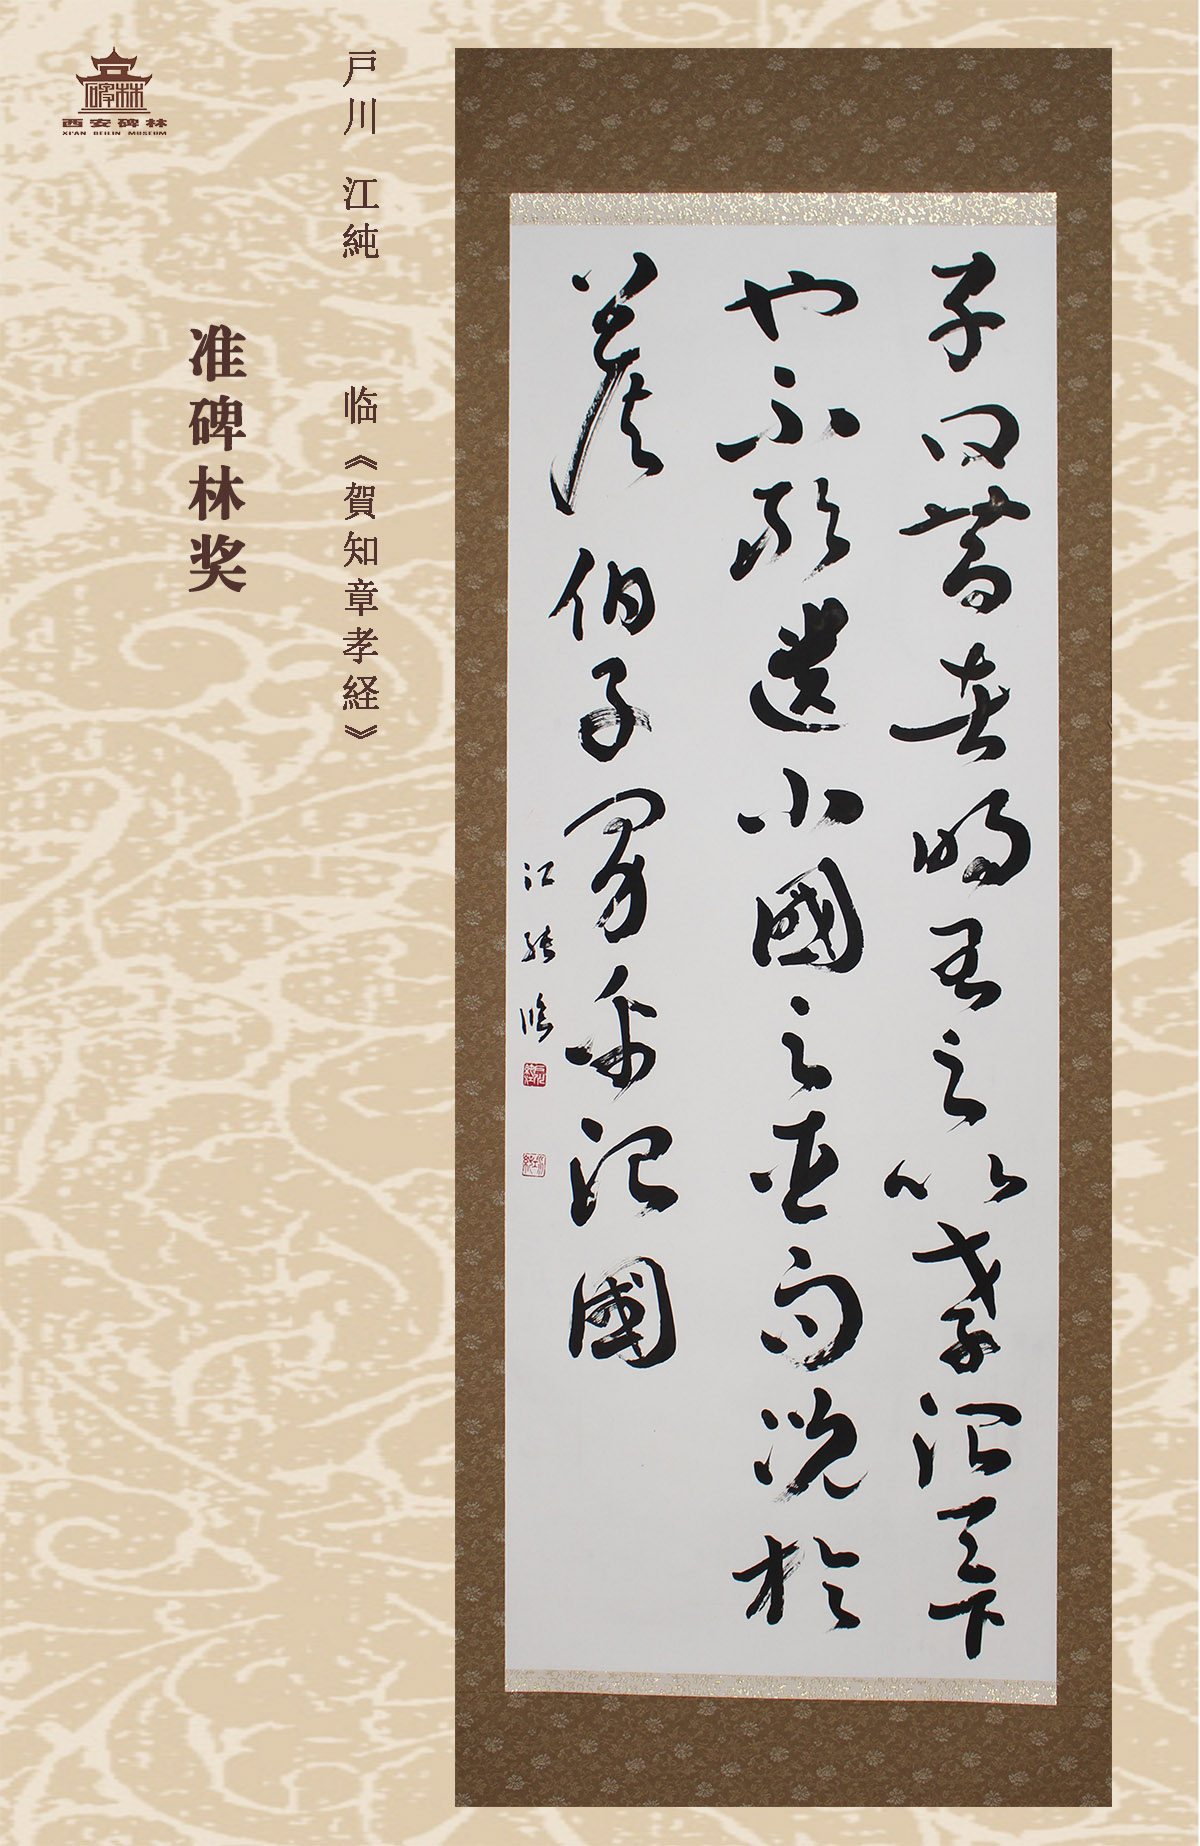 子曰昔者明王之以孝治天下
也不敢遺小國之臣而況於
公侯伯子男乎治國
江純臨
戸川 江純 临《賀知章孝経》
准碑林奖
西安碑林
XI'AN BEILIN MUSEUM